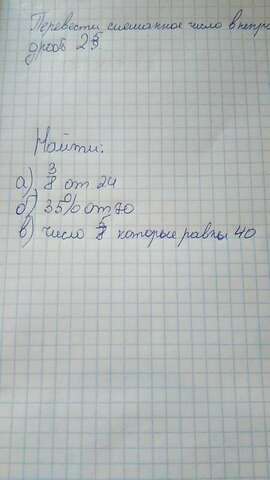 Перевести смешанное число в непра
дробь 2
Найти:
а) 3/8 от 24
б) 35% от
в) число которые равны 40